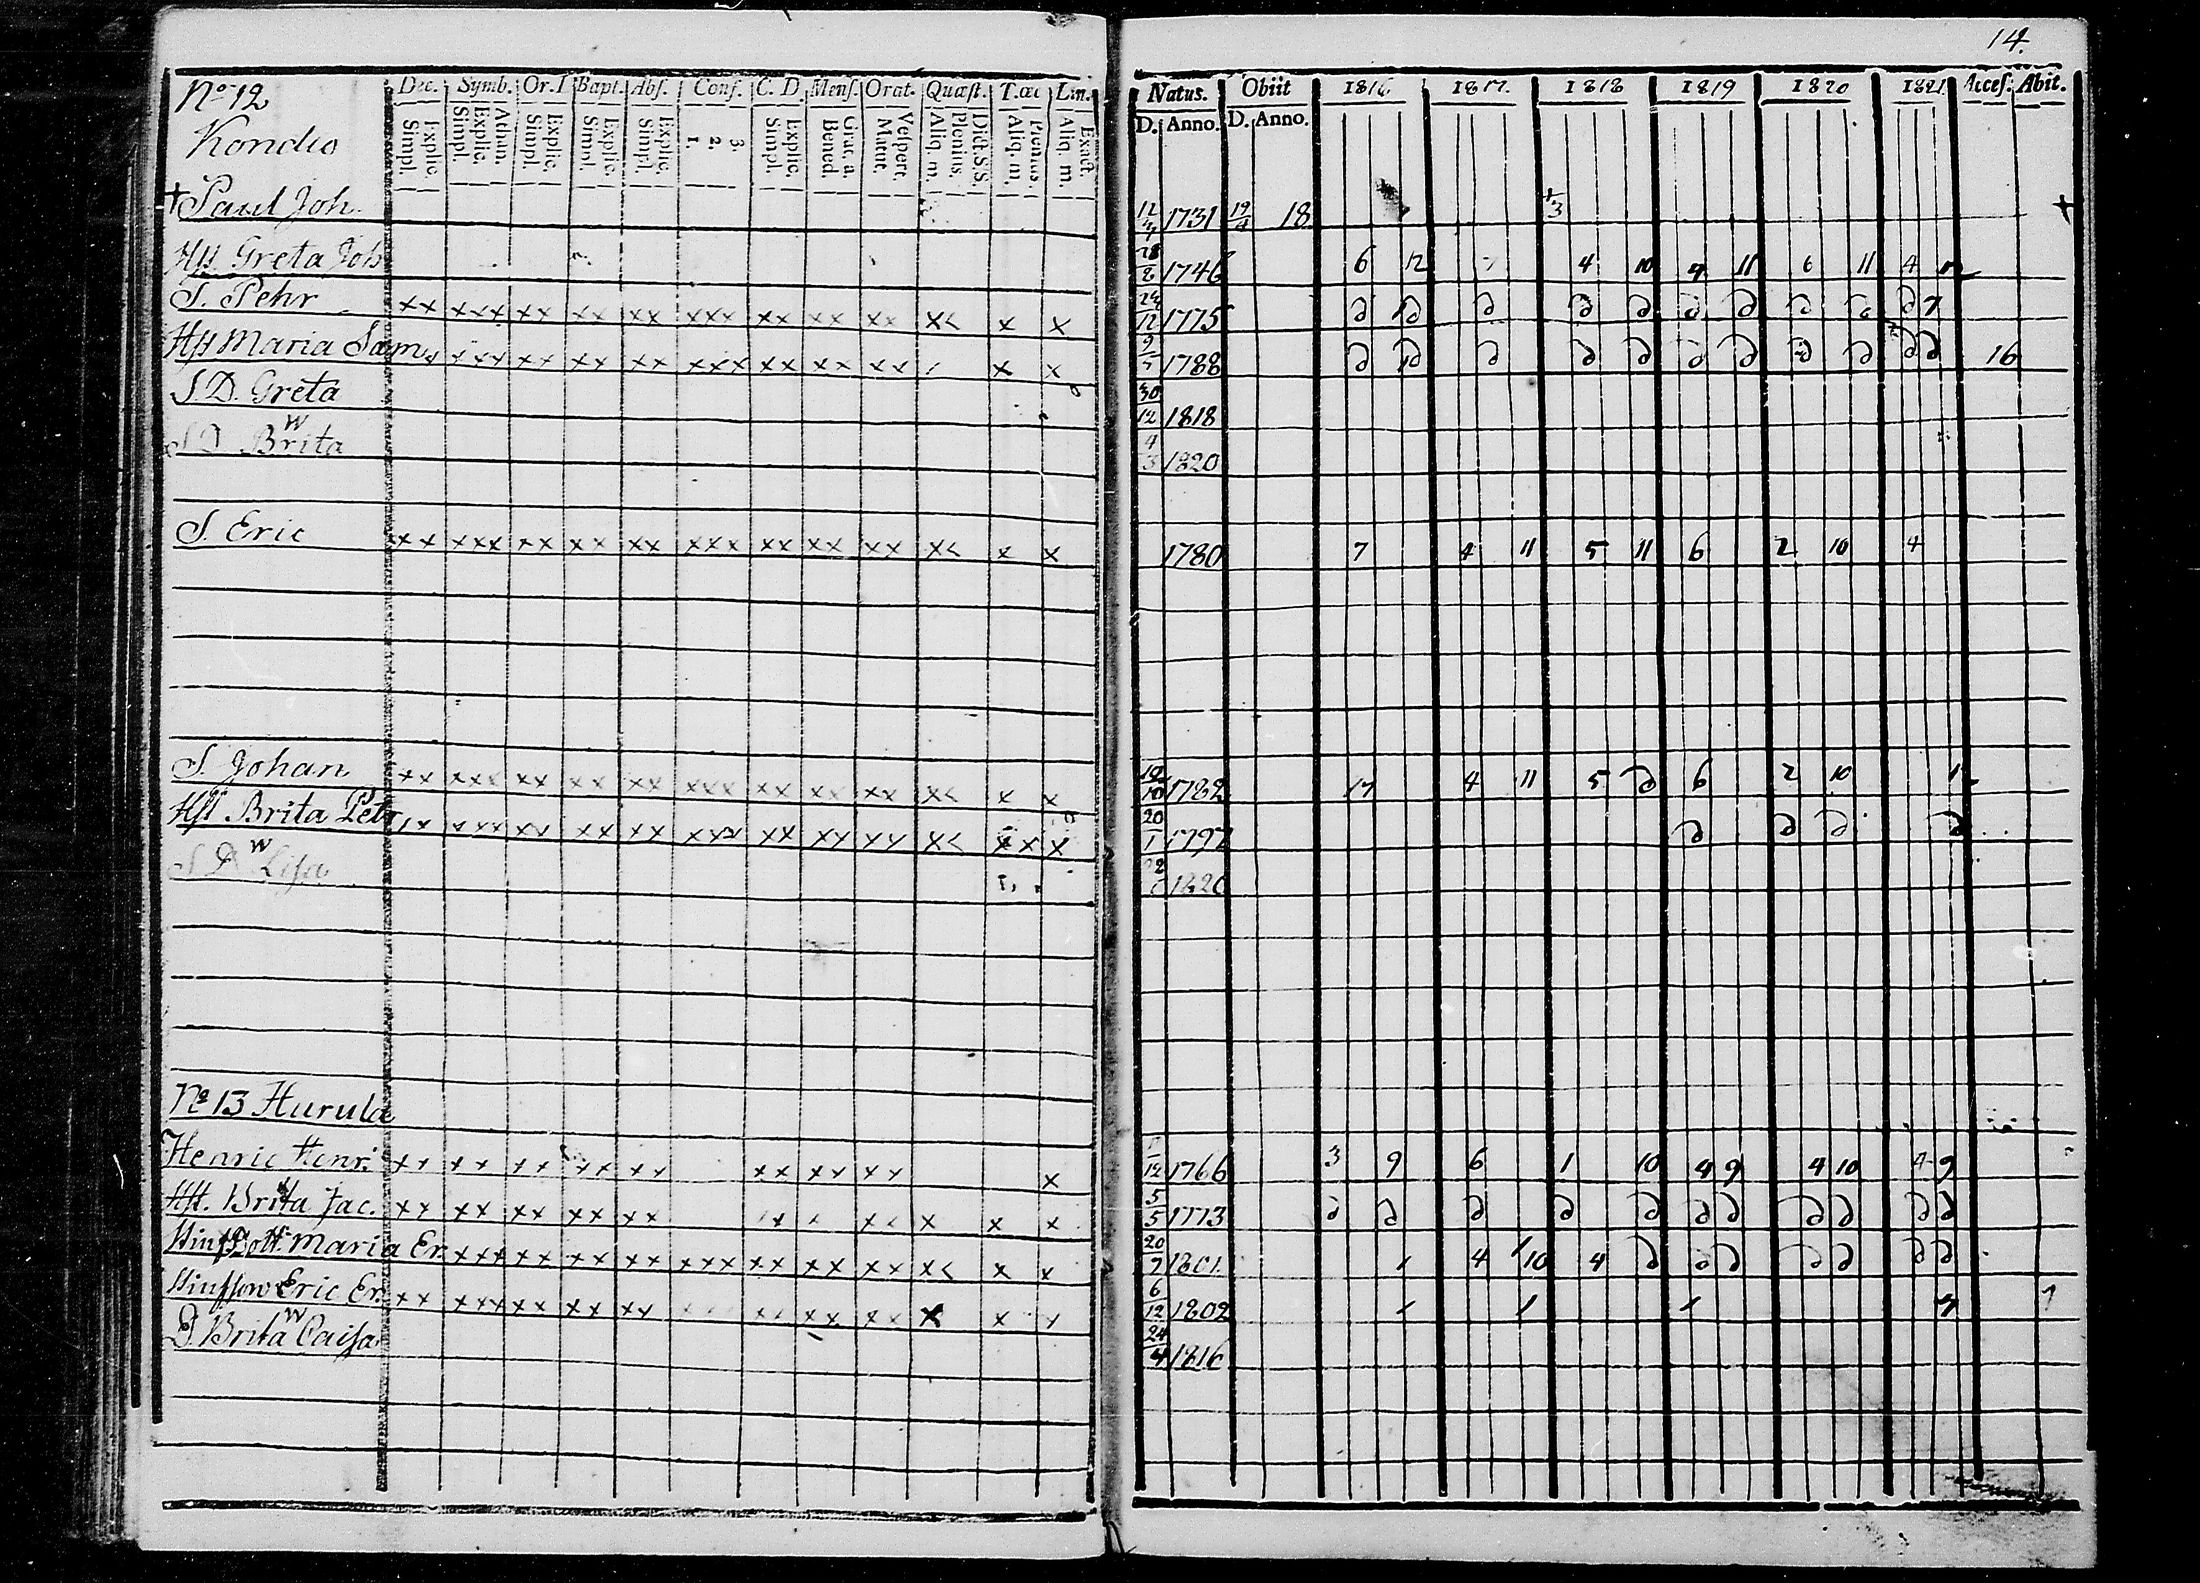 14.
No 12 Dec. Symb. Or. D Bapt. Abs. Conf. C. D. Mens. Orat. Quæst. T. œc Lin.
Explic. Simpl. Athan. Explic. Simpl. Explic. Simpl. Explic. Simpl. Explic. Simpl. 3. 2. 1. Explic. Simpl. Grat. a. Bened. Vespert. Matut. Dict. S.S. Plenius. Aliq. m. Plenius. Aliq. m. Exact. Aliq. m.
Natus. Obiit 1816 1817 1818 1819 1820 1821 Acces. Abit.
D. Anno. D. Anno.
Kondio
+ Paul Joh. 12/7 1731 19/4 18 +3 +
Hst. Greta Joh 28/8 1746 6 12 4 10 4 11 6 11 4 12
S. Pehr xx xxx xx xx xx xxx xx xx xx x< x x 24/12 1775 d d d d d d d d d d 7
Hst Maria Sam x xxx xx xx xx xxx xx xx xx x x 9/7 1788 d d d d d d d d d d d 16
S. D. Greta 30/12 1818
S D Brita w 4/3 1820
S. Eric xx xxx xx xx xx xxx xx xx xx x< x x 1780 7 4 11 5 11 6 2 10 4
S. Johan xx xxx xx xx xx xxx xx xx xx x< x x 19/10 1782 17 4 11 5 d 6 2 10 1
Hst Brita Petr xx xxx xx xx xx xxx xx xx xx x< x x x 20/1 1797 d d d d
S D w Lisa 1820
No 13 Hurula
Henric Henr. xx xx xx xx xx xx xx xx x /12 1766 3 9 6 1 10 4 9 4 10 4 9
Hst. Brita Jac. xx xx xx xx xx xx x xx x x x 5/5 1773 d d d d d d d d d d d
Hins Dott. Maria Er. xxx xx xx xx xxx xx xx xx x< x x 20/7 1801 1 4 10 4 d d d d d d d
Hinsson Eric Er. xx xxx xx xx xx xxx xx xx xx x x x 6/12 1802 1 1 1 7
D. Brita w Caisa 24/4 1816